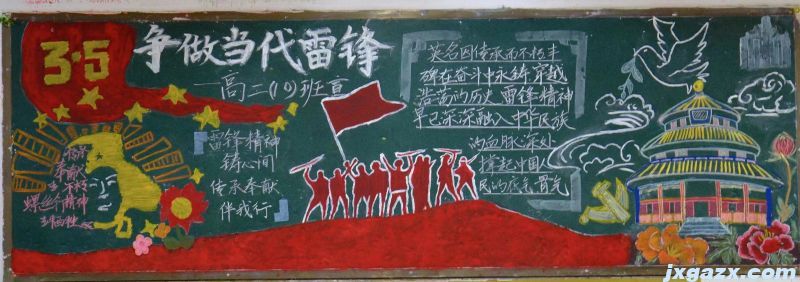 3·5
争做当代雷锋
—高二(19)班宣
英名因传承而不朽丰
碑在奋斗中永铸穿越
浩荡的历史 雷锋精神
早已深深融入中华民族
的血脉深处
撑起中国人
民的底气骨气
雷锋精神
铸心间
传承奉献
伴我行
奉献
不朽
螺丝钉精神
jxgazx.com